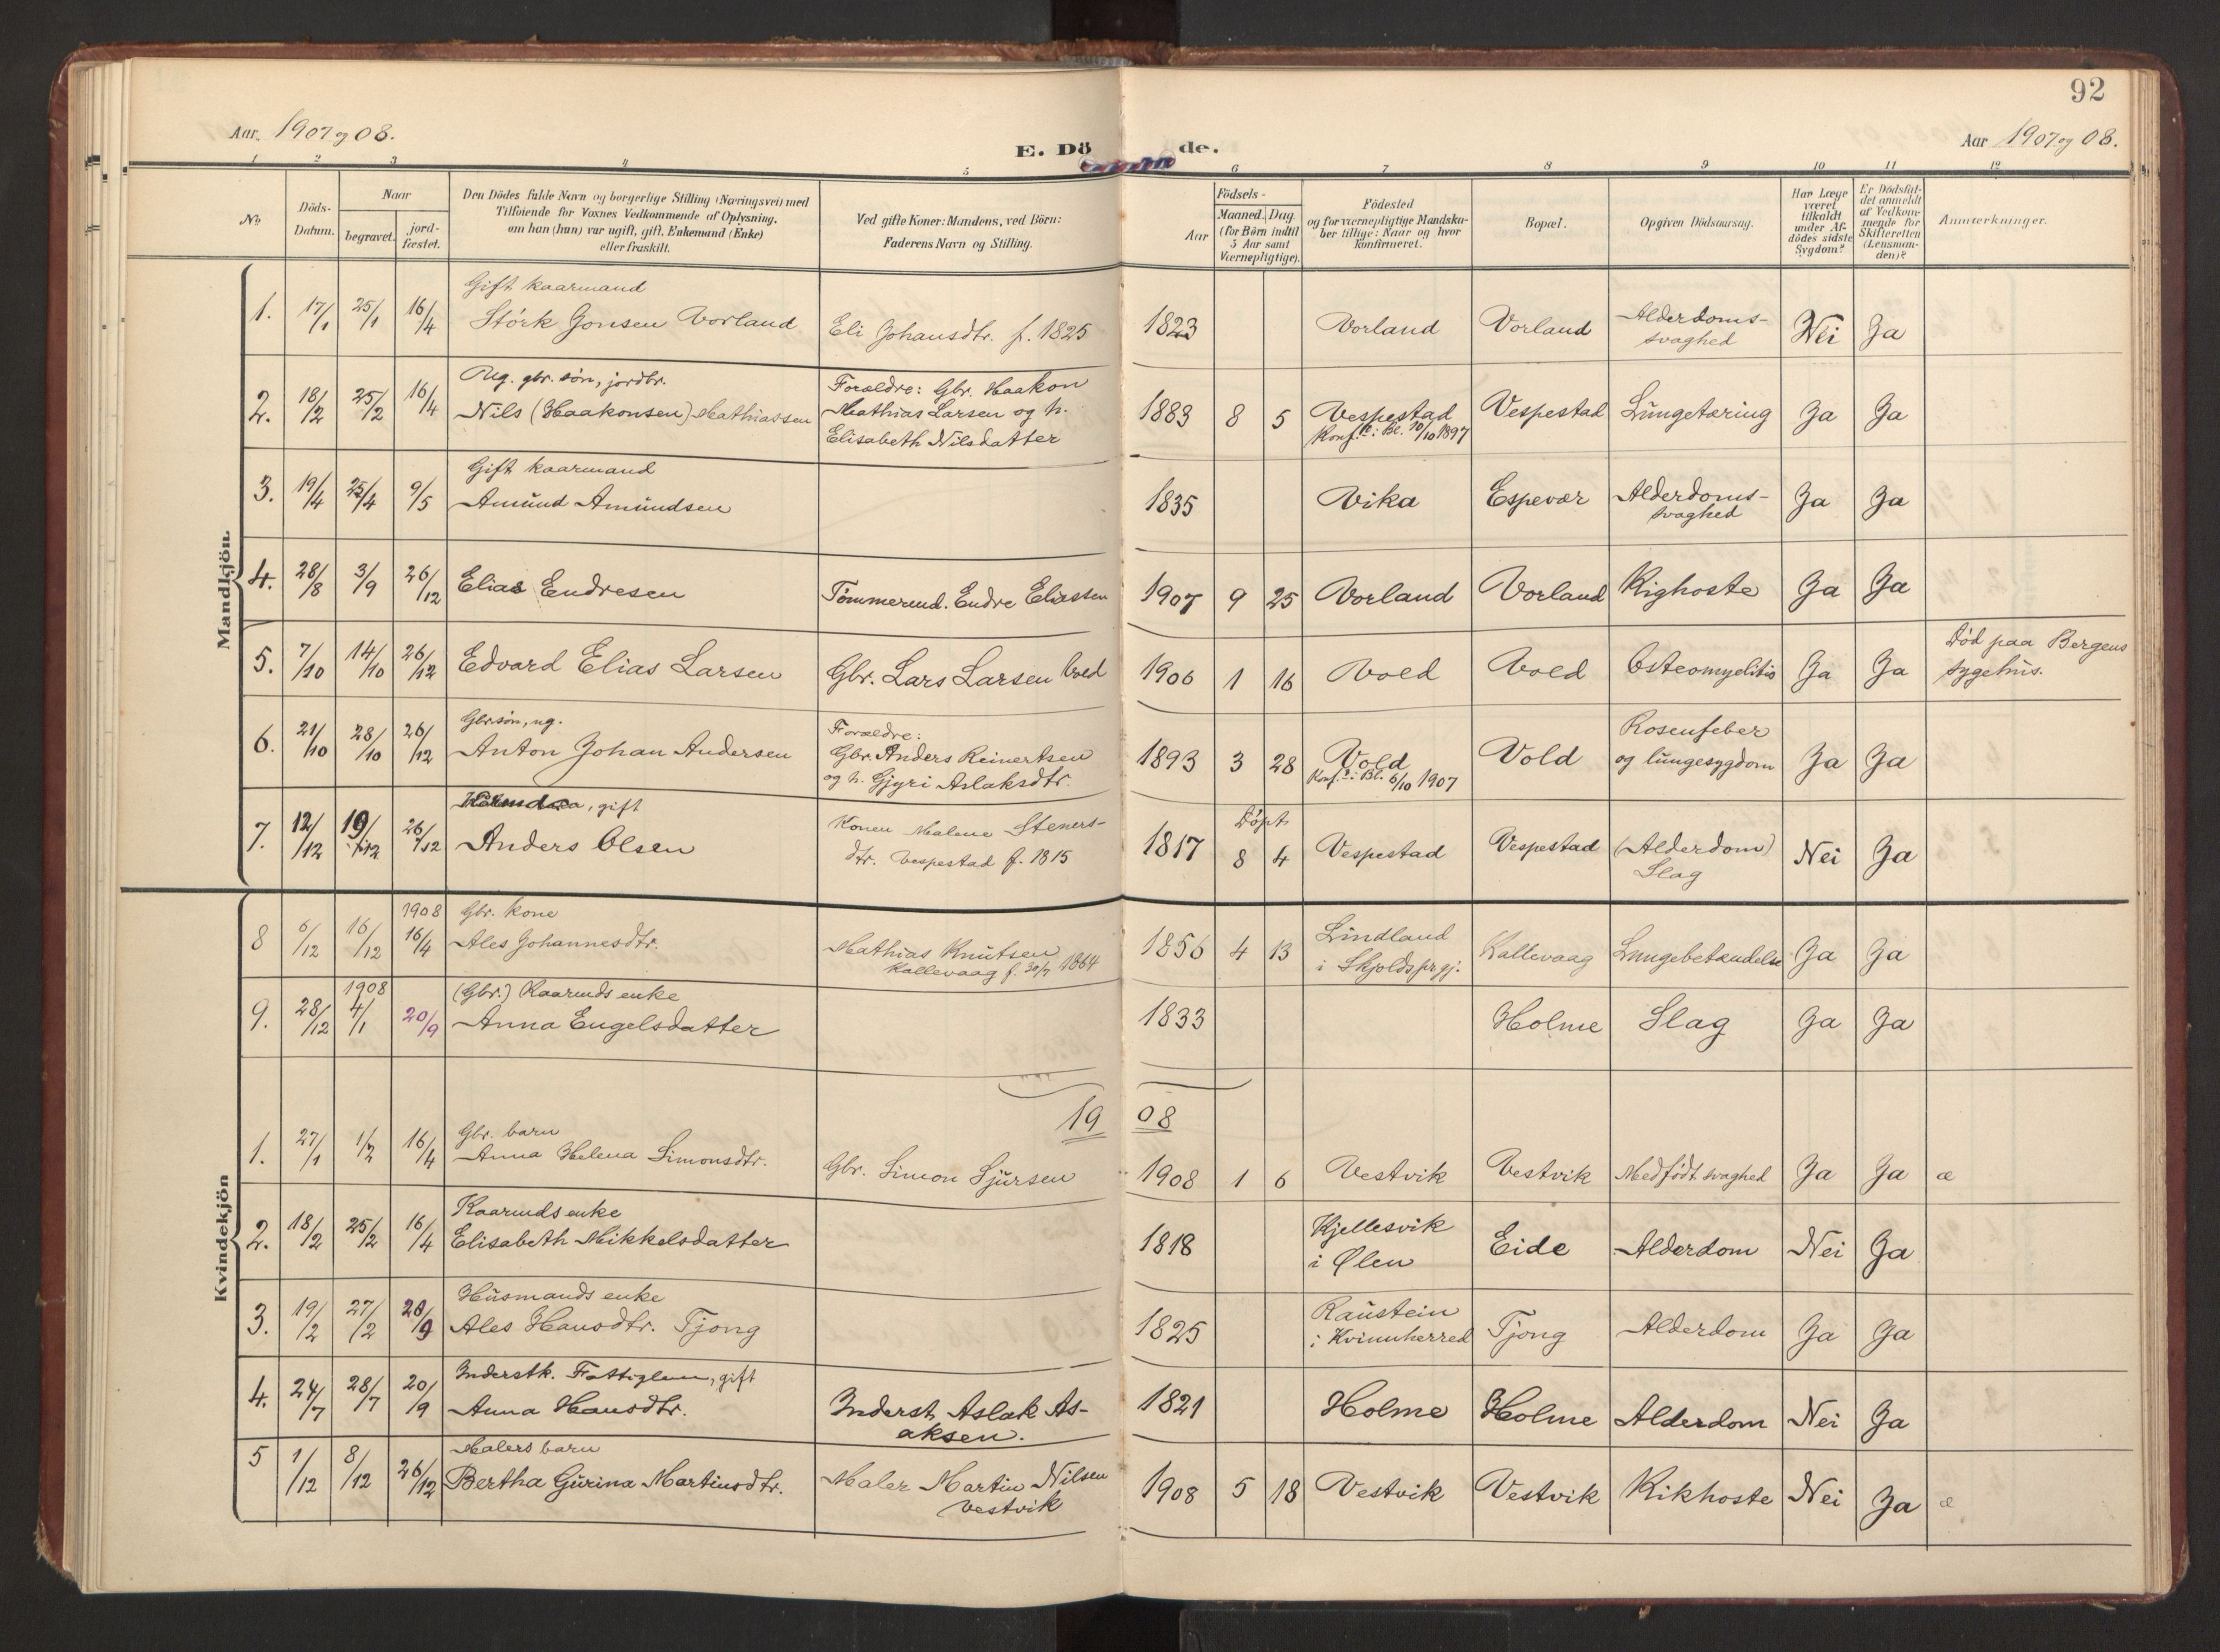 92
Aar 1907 og 08.
E. Döde.
Aar 1907 og 08.
1 2 3 4 5 6 7 8 9 10 11 12
No.
Döds-Datum.
Naar
begravet.
jord-fæstet.
Den Dödes fulde Navn og borgerlige Stilling (Næringsvei) med
Tilföiende for Voxnes Vedkommende af Oplysning,
om han (hun) var ugift, gift, Enkemand (Enke)
eller fraskilt.
Ved gifte Koner: Mandens, ved Börn:
Faderens Navn og Stilling.
Födsels-
Aar
Maaned. Dag
(for Börn indtil
5 Aar samt
Værnepligtige).
Födested
og for værnepligtige Mandska-
ber tillige: Naar og hvor
Konfirmeret.
Bopæl.
Opgiven Dödsaarsag.
Har Læge
været
tilkaldt
under Af-
dödes sidste
Sygdom?
Er Dödsfal-
det anmeldt
af Vedkom-
mende for
Skifteretten
(Lensman-
den)?
Anmerkninger.
Mandkjön.
Gift kaarmand
1. 17/1 25/1 16/4 Störk Jonsen Vorland Eli Johansdtr. f. 1825 1823 Vorland Vorland Alderdoms- Nei Ja
svaghed
Ug. gbr. søn, jordbr. Forældre: Gbr. Haakon
2. 18/2 25/2 16/4 Nils (Haakonsen) Mathiassen Mathias Larsen og h. 1883 8 5 Vespestad Vespestad Lungetæring Ja Ja
Elisabeth Nilsdatter Konf. i Bl. 10/10 1897
Gift kaarmand
3. 19/4 25/4 9/5 Amund Amundsen 1835 Vika Espevær Alderdoms- Ja Ja
svaghed
4. 28/8 3/9 26/12 Elias Endresen Tømmermd. Endre Eliassen 1907 9 25 Vorland Vorland Kighoste Ja Ja
5. 7/10 14/10 26/12 Edvard Elias Larsen Gbr. Lars Larsen Vold 1906 1 16 Vold Vold Osteomyelitis Ja Ja Död paa Bergens
sygehus.
Gbr.søn, ug. Forældre: Rosenfeber
6. 21/10 28/10 26/12 Anton Johan Andersen Gbr. Anders Reinertsen 1893 3 28 Vold Vold og lungesygdom Ja Ja
og h. Gjyri Aslaksdtr. Konf. i Bl. 6/10 1907
gift Konen Malene Steners- Døpt
7. 12/12 19/12 26/12 Anders Olsen dtr. Vespestad f. 1815 1817 8 4 Vespestad Vespestad (Alderdom) Nei Ja
Slag
Kvindekjön
1908 Gbr. kone Lindland
8 6/12 16/12 16/4 Ales Johannesdtr. Mathias Knutsen 1856 4 13 i Skjolds prgj. Kallevaag Lungebetændelse Ja Ja
Kallevaag f. 30/7 1864
1908 (Gbr.) Kaarmds enke
9. 28/12 4/1 20/9 Anna Engelsdatter 1833 Holme Slag Ja Ja
19 08
Gbr. barn
1. 27/1 1/2 16/4 Anna Helena Simonsdtr. Gbr. Simon Sjursen 1908 1 6 Vestvik Vestvik Medfödt svaghed Ja Ja æ
Kaarmds enke Kjellesvik
2. 18/2 25/2 16/4 Elisabeth Mikkelsdatter 1818 i Ølen Eide Alderdom Nei Ja
Husmands enke Raustein
3. 19/2 27/2 20/9 Ales Hansdtr. Tjong 1825 i Kvinnherred Tjong Alderdom Ja Ja
Inderstk. Fattiglem, gift
4. 24/7 28/7 20/9 Anna Hansdtr. Inderst Aslak As- 1821 Holme Holme Alderdom Nei Ja
aksen.
Malers barn
5 1/12 8/12 26/12 Bertha Gurina Martinsdtr. Maler Martin Nilsen 1908 5 18 Vestvik Vestvik Kikhoste Nei Ja æ
Vestvik